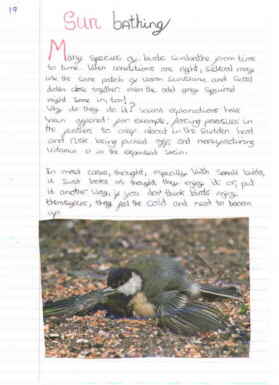 19
Sun bathing
Many species of birds sunbathe from time
to time. When conditions are right, several may
use the same patch of warm sunshine and settle
down close together. even the odd grey squirrel
might join in too!
Why do they do it? Various explanations have
been given: for example, forcing parasites in
the feathers to move about in the sudden heat
and risk being picked off; and manufacturing
vitamin D in the exposed skin.
In most cases, though, especially with small birds,
it just looks as thought they enjoy it or, put
it another way, if you don't think birds enjoy
themselves, they feel the cold and need to warm
up